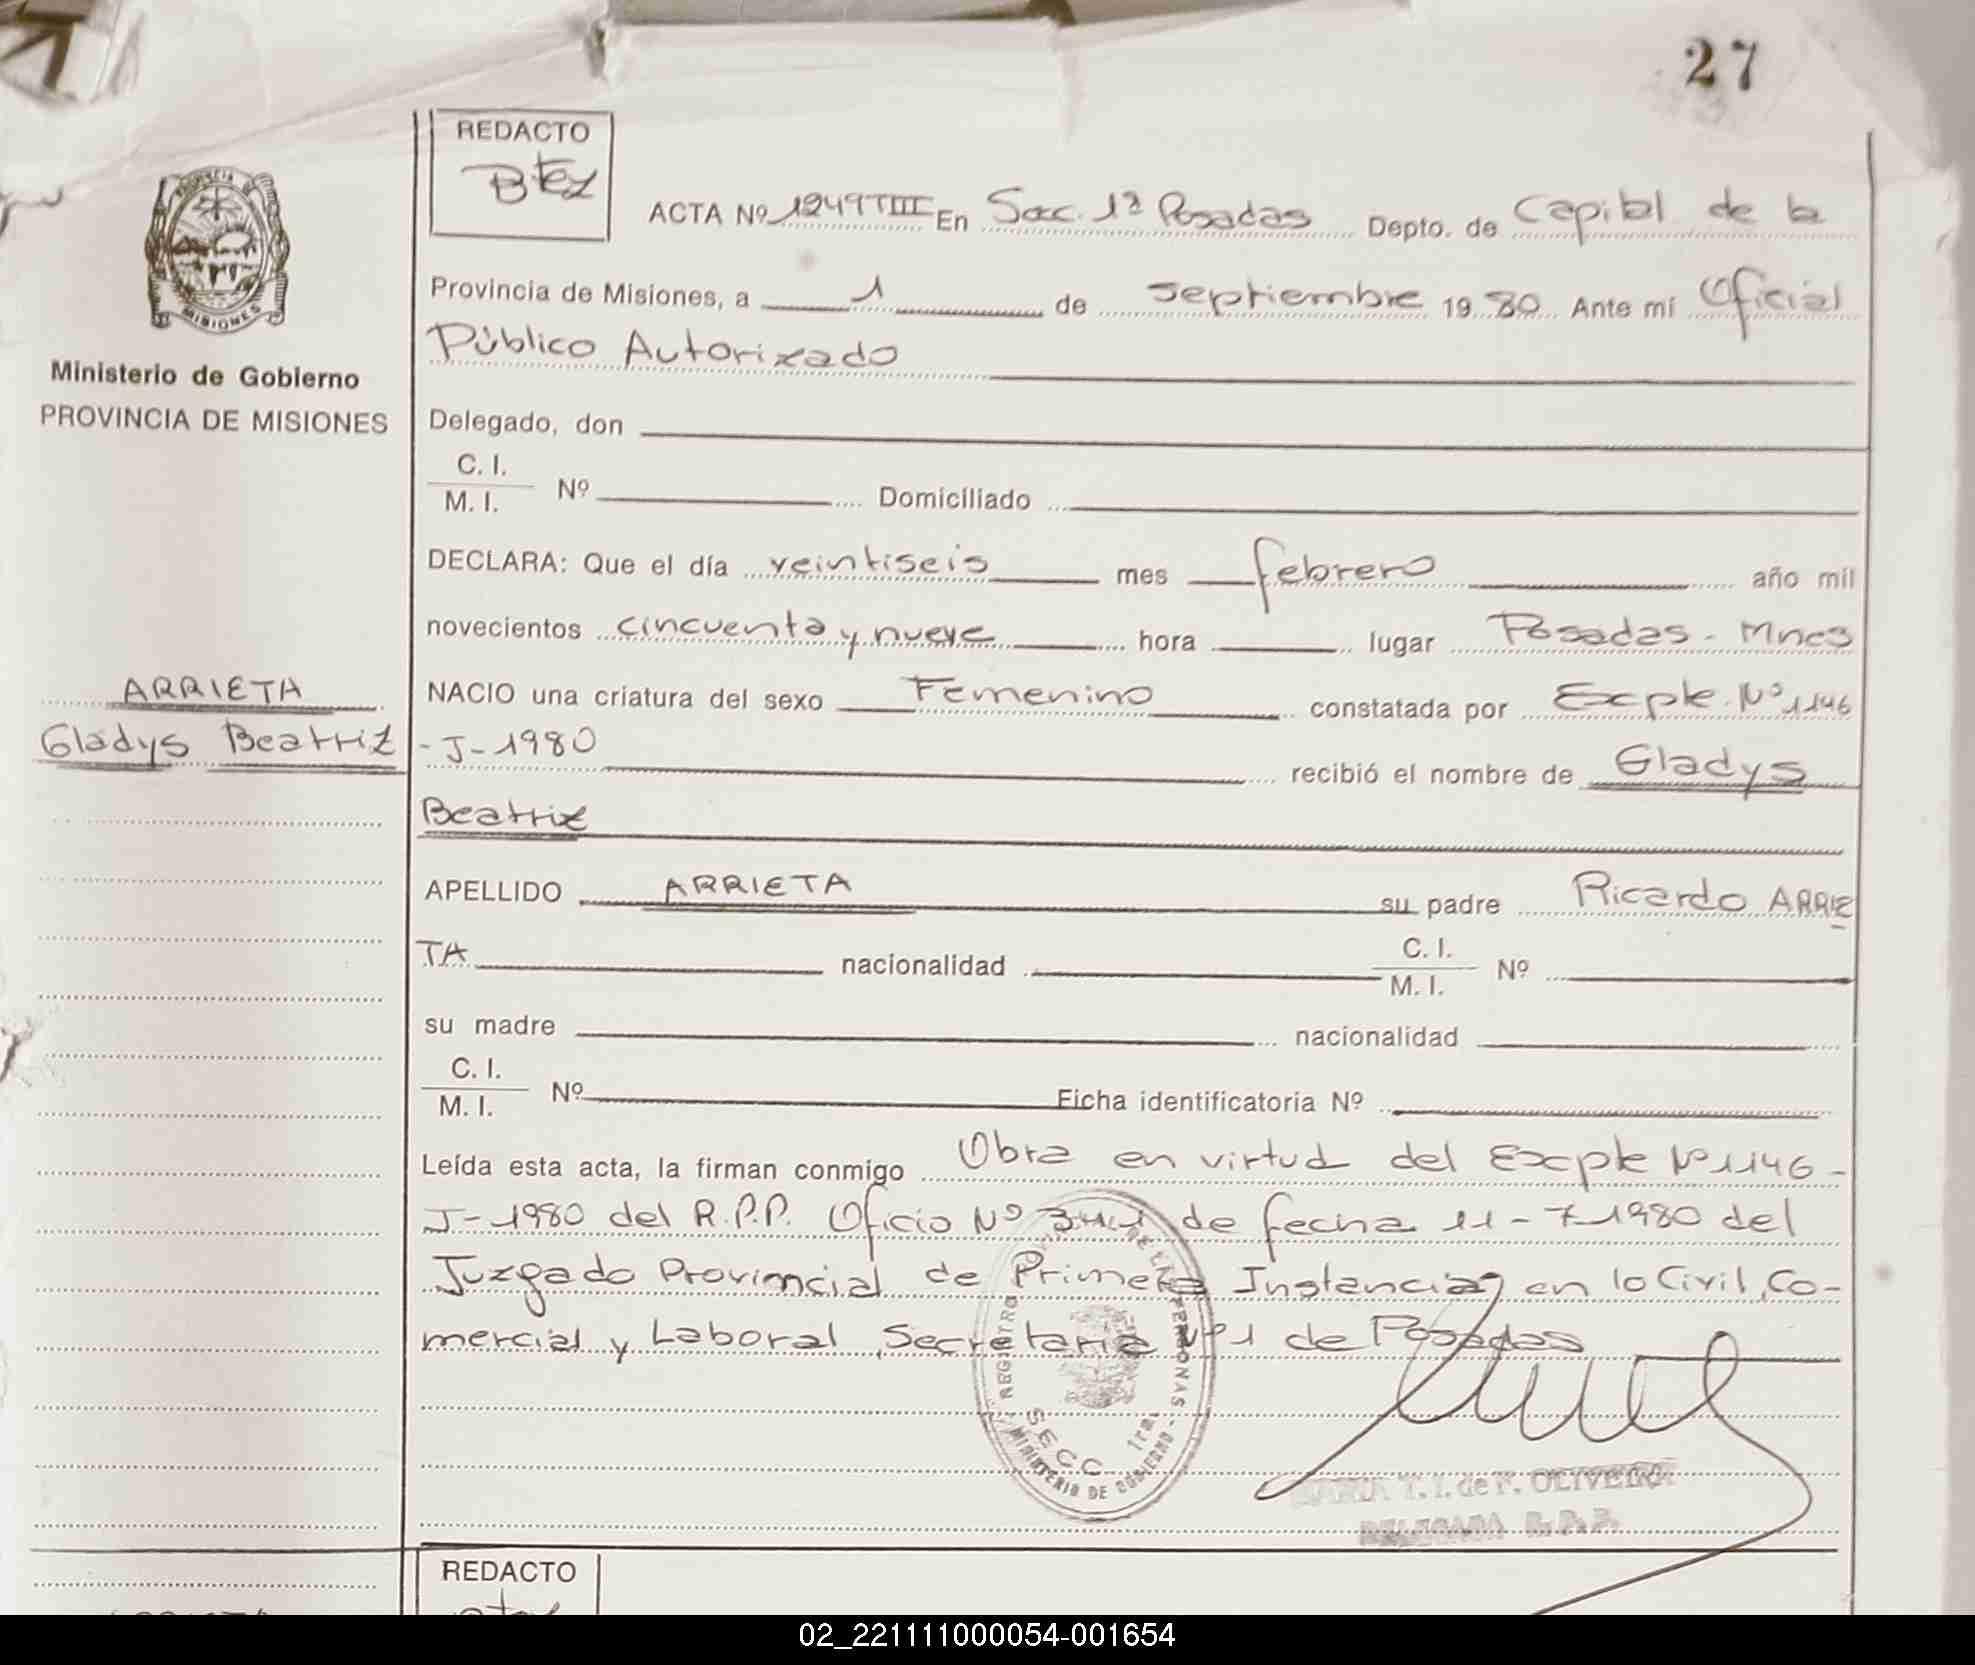 27
REDACTO
Btez
ACTA Nº 1249TIII En Secc. 1ª Posadas Depto. de Capital de la
Provincia de Misiones, a 1 de septiembre 1980 Ante mí Oficial
Público Autorizado
MISIONES
Ministerio de Gobierno
PROVINCIA DE MISIONES
Delegado, don
C. I.
M. I. Nº Domiciliado
DECLARA: Que el día veintiseis mes febrero año mil
novecientos cincuenta y nueve hora lugar Posadas - Mnes
ARRIETA
Gladys Beatriz
NACIO una criatura del sexo Femenino constatada por Excpte. Nº 1146
- J - 1980 recibió el nombre de Gladys
Beatriz
APELLIDO ARRIETA su padre Ricardo ARRIE
TA nacionalidad C. I. M. I. Nº
su madre nacionalidad
C. I.
M. I. Nº Ficha identificatoria Nº
Leída esta acta, la firman conmigo Obra en virtud del Excpte Nº 1146 -
J - 1980 del R.P.P. Oficio Nº de fecha 11 - 7 - 1980 del
Juzgado Provincial de Primera Instancia, en lo Civil, Co-
mercial y Laboral, Secretaria Nº 1 de Posadas
REGISTRO DE LAS PERSONAS
SECC 1ra.
MINISTERIO DE GOBIERNO
MARIA T. I. de F. OLIVEIRA
DELEGADA R. P. P.
REDACTO
02_221111000054-001654